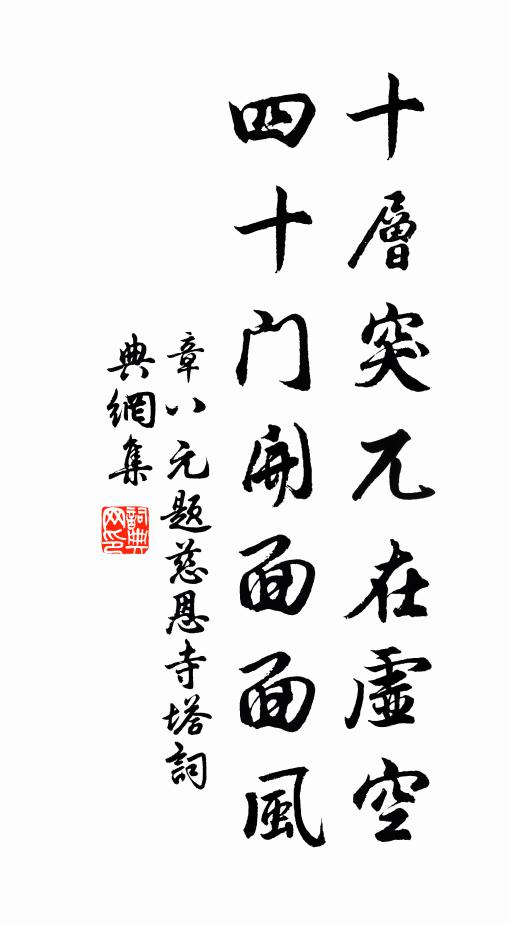 十層突兀在虛空
四十門開面面風
章八元題慈恩寺塔詞
典網集
詞典网印